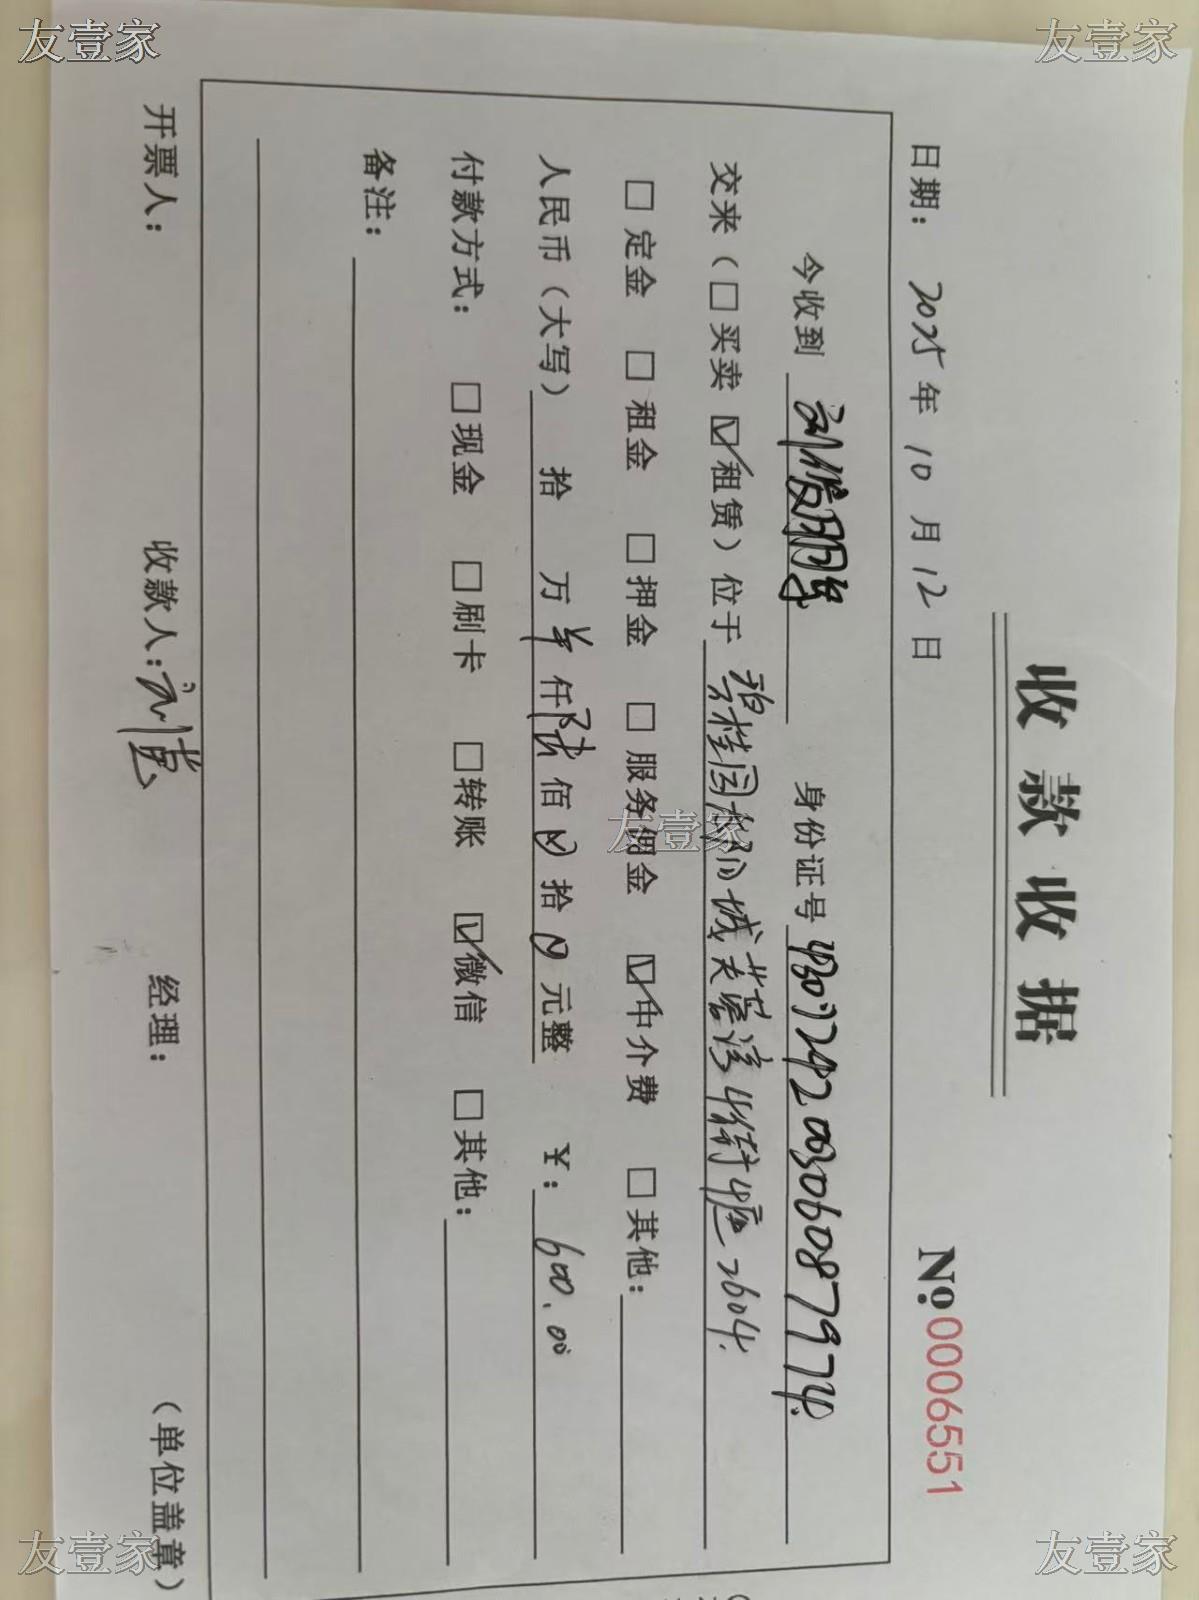 收款收据
日期：2025年10月12日
No.0006551
今收到 刘 身份证号
交来（□买卖 ☑租赁）位于 碧桂园 城芙蓉湾4街4座2604
□定金 □租金 □押金 □服务佣金 ☑中介费 □其他：
人民币（大写） 拾 万 仟陆佰 0 拾 0 元整 ￥：600.00
付款方式：□现金 □刷卡 □转账 ☑微信 □其他：
备注：
开票人： 收款人： 经理： （单位盖章）
友壹家
友壹家
友壹家
友壹家
友壹家